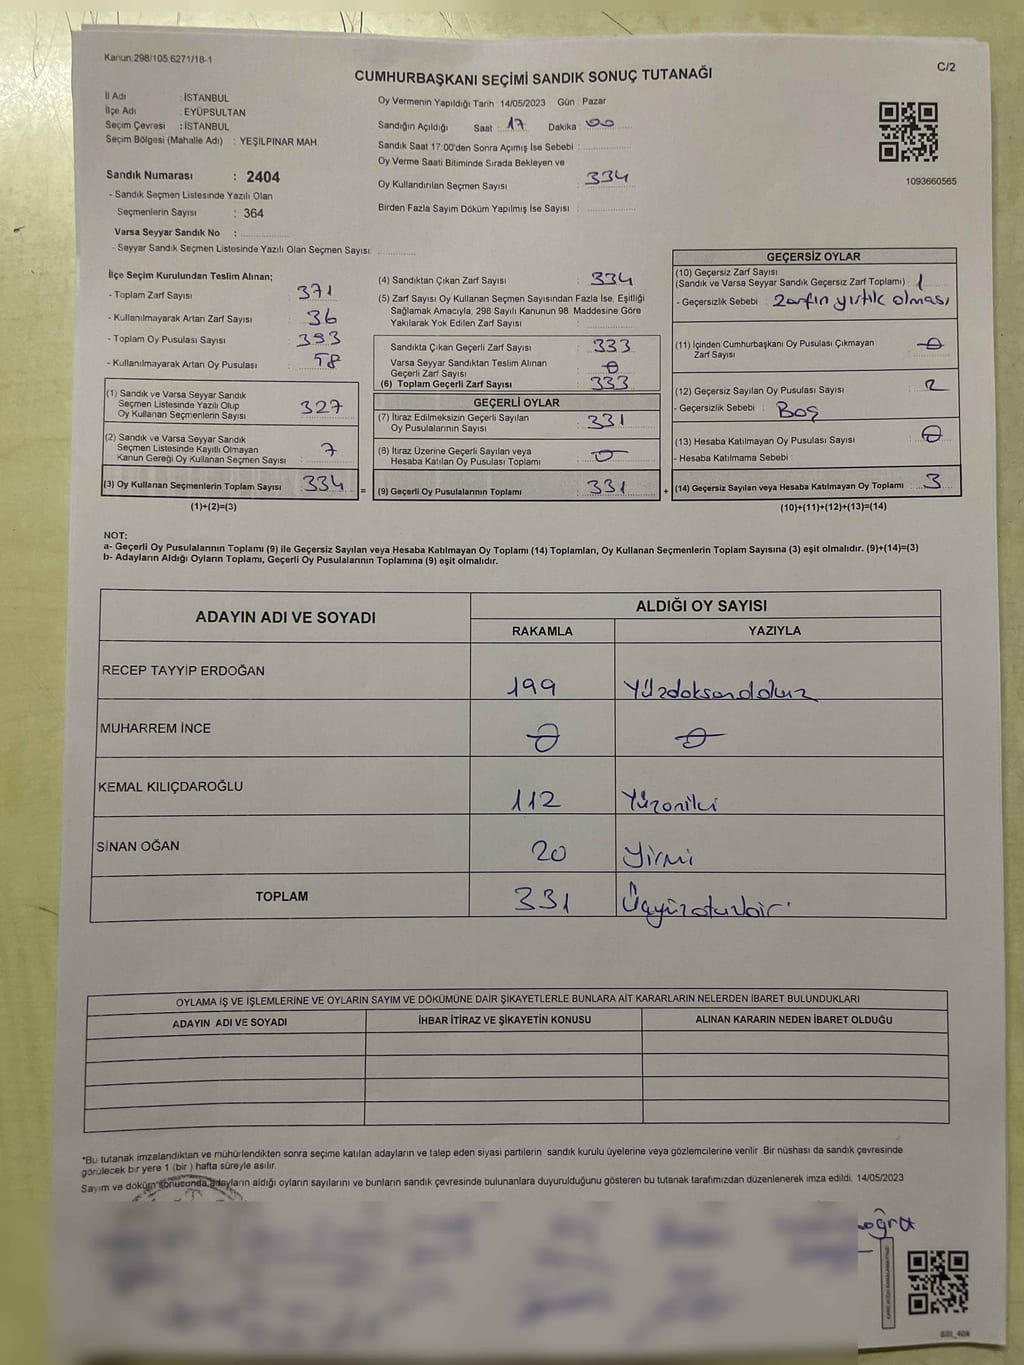 Kanun:298/105.6271/18-1
C/2
CUMHURBAŞKANI SEÇİMİ SANDIK SONUÇ TUTANAĞI
İl Adı : İSTANBUL
İlçe Adı : EYÜPSULTAN
Seçim Çevresi : İSTANBUL
Seçim Bölgesi (Mahalle Adı) : YEŞİLPINAR MAH.
Sandık Numarası : 2404
- Sandık Seçmen Listesinde Yazılı Olan
Seçmenlerin Sayısı : 364
Varsa Seyyar Sandık No :
- Seyyar Sandık Seçmen Listesinde Yazılı Olan Seçmen Sayısı:
Oy Vermenin Yapıldığı Tarih : 14/05/2023 Gün : Pazar
Sandığın Açıldığı Saat : 17 Dakika : 00
Sandık Saat 17:00'den Sonra Açımış İse Sebebi :
Oy Verme Saati Bitiminde Sırada Bekleyen ve
Oy Kullandırılan Seçmen Sayısı : 334
Birden Fazla Sayım Döküm Yapılmış İse Sayısı :
1093660565
İlçe Seçim Kurulundan Teslim Alınan;
- Toplam Zarf Sayısı : 371
- Kullanılmayarak Artan Zarf Sayısı : 36
- Toplam Oy Pusulası Sayısı : 393
- Kullanılmayarak Artan Oy Pusulası : 58
(1) Sandık ve Varsa Seyyar Sandık
Seçmen Listesinde Yazılı Olup
Oy Kullanan Seçmenlerin Sayısı : 327
(2) Sandık ve Varsa Seyyar Sandık
Seçmen Listesinde Kayıtlı Olmayan
Kanun Gereği Oy Kullanan Seçmen Sayısı : 7
(3) Oy Kullanan Seçmenlerin Toplam Sayısı : 334 =
(1)+(2)=(3)
(4) Sandıktan Çıkan Zarf Sayısı : 334
(5) Zarf Sayısı Oy Kullanan Seçmen Sayısından Fazla İse, Eşitliği
Sağlamak Amacıyla, 298 Sayılı Kanunun 98. Maddesine Göre
Yakılarak Yok Edilen Zarf Sayısı :
Sandıkta Çıkan Geçerli Zarf Sayısı : 333
Varsa Seyyar Sandıktan Teslim Alınan
Geçerli Zarf Sayısı : 0
(6) Toplam Geçerli Zarf Sayısı : 333
GEÇERLİ OYLAR
(7) İtiraz Edilmeksizin Geçerli Sayılan
Oy Pusulalarının Sayısı : 331
(8) İtiraz Üzerine Geçerli Sayılan veya
Hesaba Katılan Oy Pusulası Toplamı : 0
(9) Geçerli Oy Pusulalarının Toplamı : 331 +
GEÇERSİZ OYLAR
(10) Geçersiz Zarf Sayısı
(Sandık ve Varsa Seyyar Sandık Geçersiz Zarf Toplamı) : 1
- Geçersizlik Sebebi : Zarfın yırtık olması
(11) İçinden Cumhurbaşkanı Oy Pusulası Çıkmayan
Zarf Sayısı : 0
(12) Geçersiz Sayılan Oy Pusulası Sayısı : 2
- Geçersizlik Sebebi : Boş
(13) Hesaba Katılmayan Oy Pusulası Sayısı : 0
- Hesaba Katılmama Sebebi :
(14) Geçersiz Sayılan veya Hesaba Katılmayan Oy Toplamı : 3
(10)+(11)+(12)+(13)=(14)
NOT:
a- Geçerli Oy Pusulalarının Toplamı (9) ile Geçersiz Sayılan veya Hesaba Katılmayan Oy Toplamı (14) Toplamları, Oy Kullanan Seçmenlerin Toplam Sayısına (3) eşit olmalıdır. (9)+(14)=(3)
b- Adayların Aldığı Oyların Toplamı, Geçerli Oy Pusulalarının Toplamına (9) eşit olmalıdır.
ADAYIN ADI VE SOYADI ALDIĞI OY SAYISI
RAKAMLA YAZIYLA
RECEP TAYYİP ERDOĞAN 199 Yüzdoksandokuz
MUHARREM İNCE 0 0
KEMAL KILIÇDAROĞLU 112 Yüzoniki
SİNAN OĞAN 20 Yirmi
TOPLAM 331 Üçyüzotuzbir
OYLAMA İŞ VE İŞLEMLERİNE VE OYLARIN SAYIM VE DÖKÜMÜNE DAİR ŞİKAYETLERLE BUNLARA AİT KARARLARIN NELERDEN İBARET BULUNDUKLARI
ADAYIN ADI VE SOYADI İHBAR İTİRAZ VE ŞİKAYETİN KONUSU ALINAN KARARIN NEDEN İBARET OLDUĞU
*Bu tutanak imzalandıktan ve mühürlendikten sonra seçime katılan adayların ve talep eden siyasi partilerin sandık kurulu üyelerine veya gözlemcilerine verilir. Bir nüshası da sandık çevresinde
görülecek bir yere 1 (bir) hafta süreyle asılır.
Sayım ve döküm sonucunda adayların aldığı oyların sayılarını ve bunların sandık çevresinde bulunanlara duyurulduğunu gösteren bu tutanak tarafımızdan düzenlenerek imza edildi. 14/05/2023